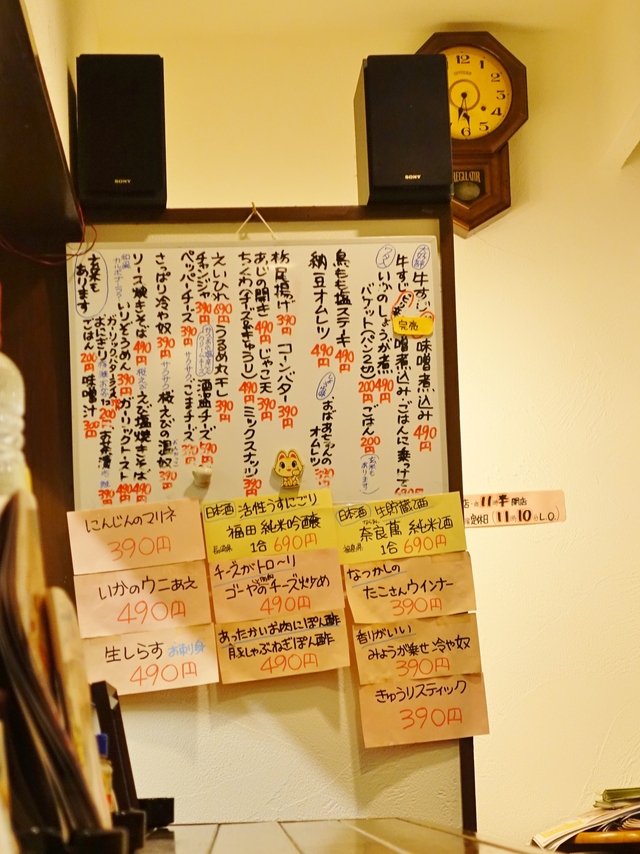 SONY
SONY
12
CITIZEN
REGULATOR
牛すじ
味噌煮込み 490円
完売
いかのしょうが煮 490円
バケット(パン2ケ) 200円
ごはん 200円
鳥もも塩ステーキ 490円
納豆オムレツ 490円
おばあちゃんのオムレツ
栃尾揚げ 390円
コーンバター 390円
あじの開き 490円
じゃこ天 390円
ちくわ(チーズ&きゅうり) 490円
ミックスナッツ 390円
えいひれ 690円
うるめ丸干し 390円
チャンジャ 390円
酒盗チーズ
ペッパーチーズ 390円
サクサクごまチーズ
さっぱり冷や奴 390円
サクサク桜えびの温奴
ソース焼きそば 490円
桜えび えび塩焼きそば 490円
いりぞうめん 390円
ガーリックトースト
おにぎり
玄米もあります
ごはん 200円
味噌汁
にんじんのマリネ
390円
日本酒 活性うすにごり
福田 純米吟醸
長崎県 1合 690円
日本酒 生貯蔵酒
奈良萬 純米酒
福島県 1合 690円
いかのウニあえ
490円
チーズがトロ〜リ
ゴーヤのチーズ炒め
490円
なつかしの
たこさんウインナー
390円
生しらす お刺り身
490円
あったかいお肉にぽん酢
豚しゃぶねぎぽん酢
490円
香りがいい
みょうが乗せ 冷や奴
390円
きゅうりスティック
390円
11時半 閉店
(11時10分 L.O.)